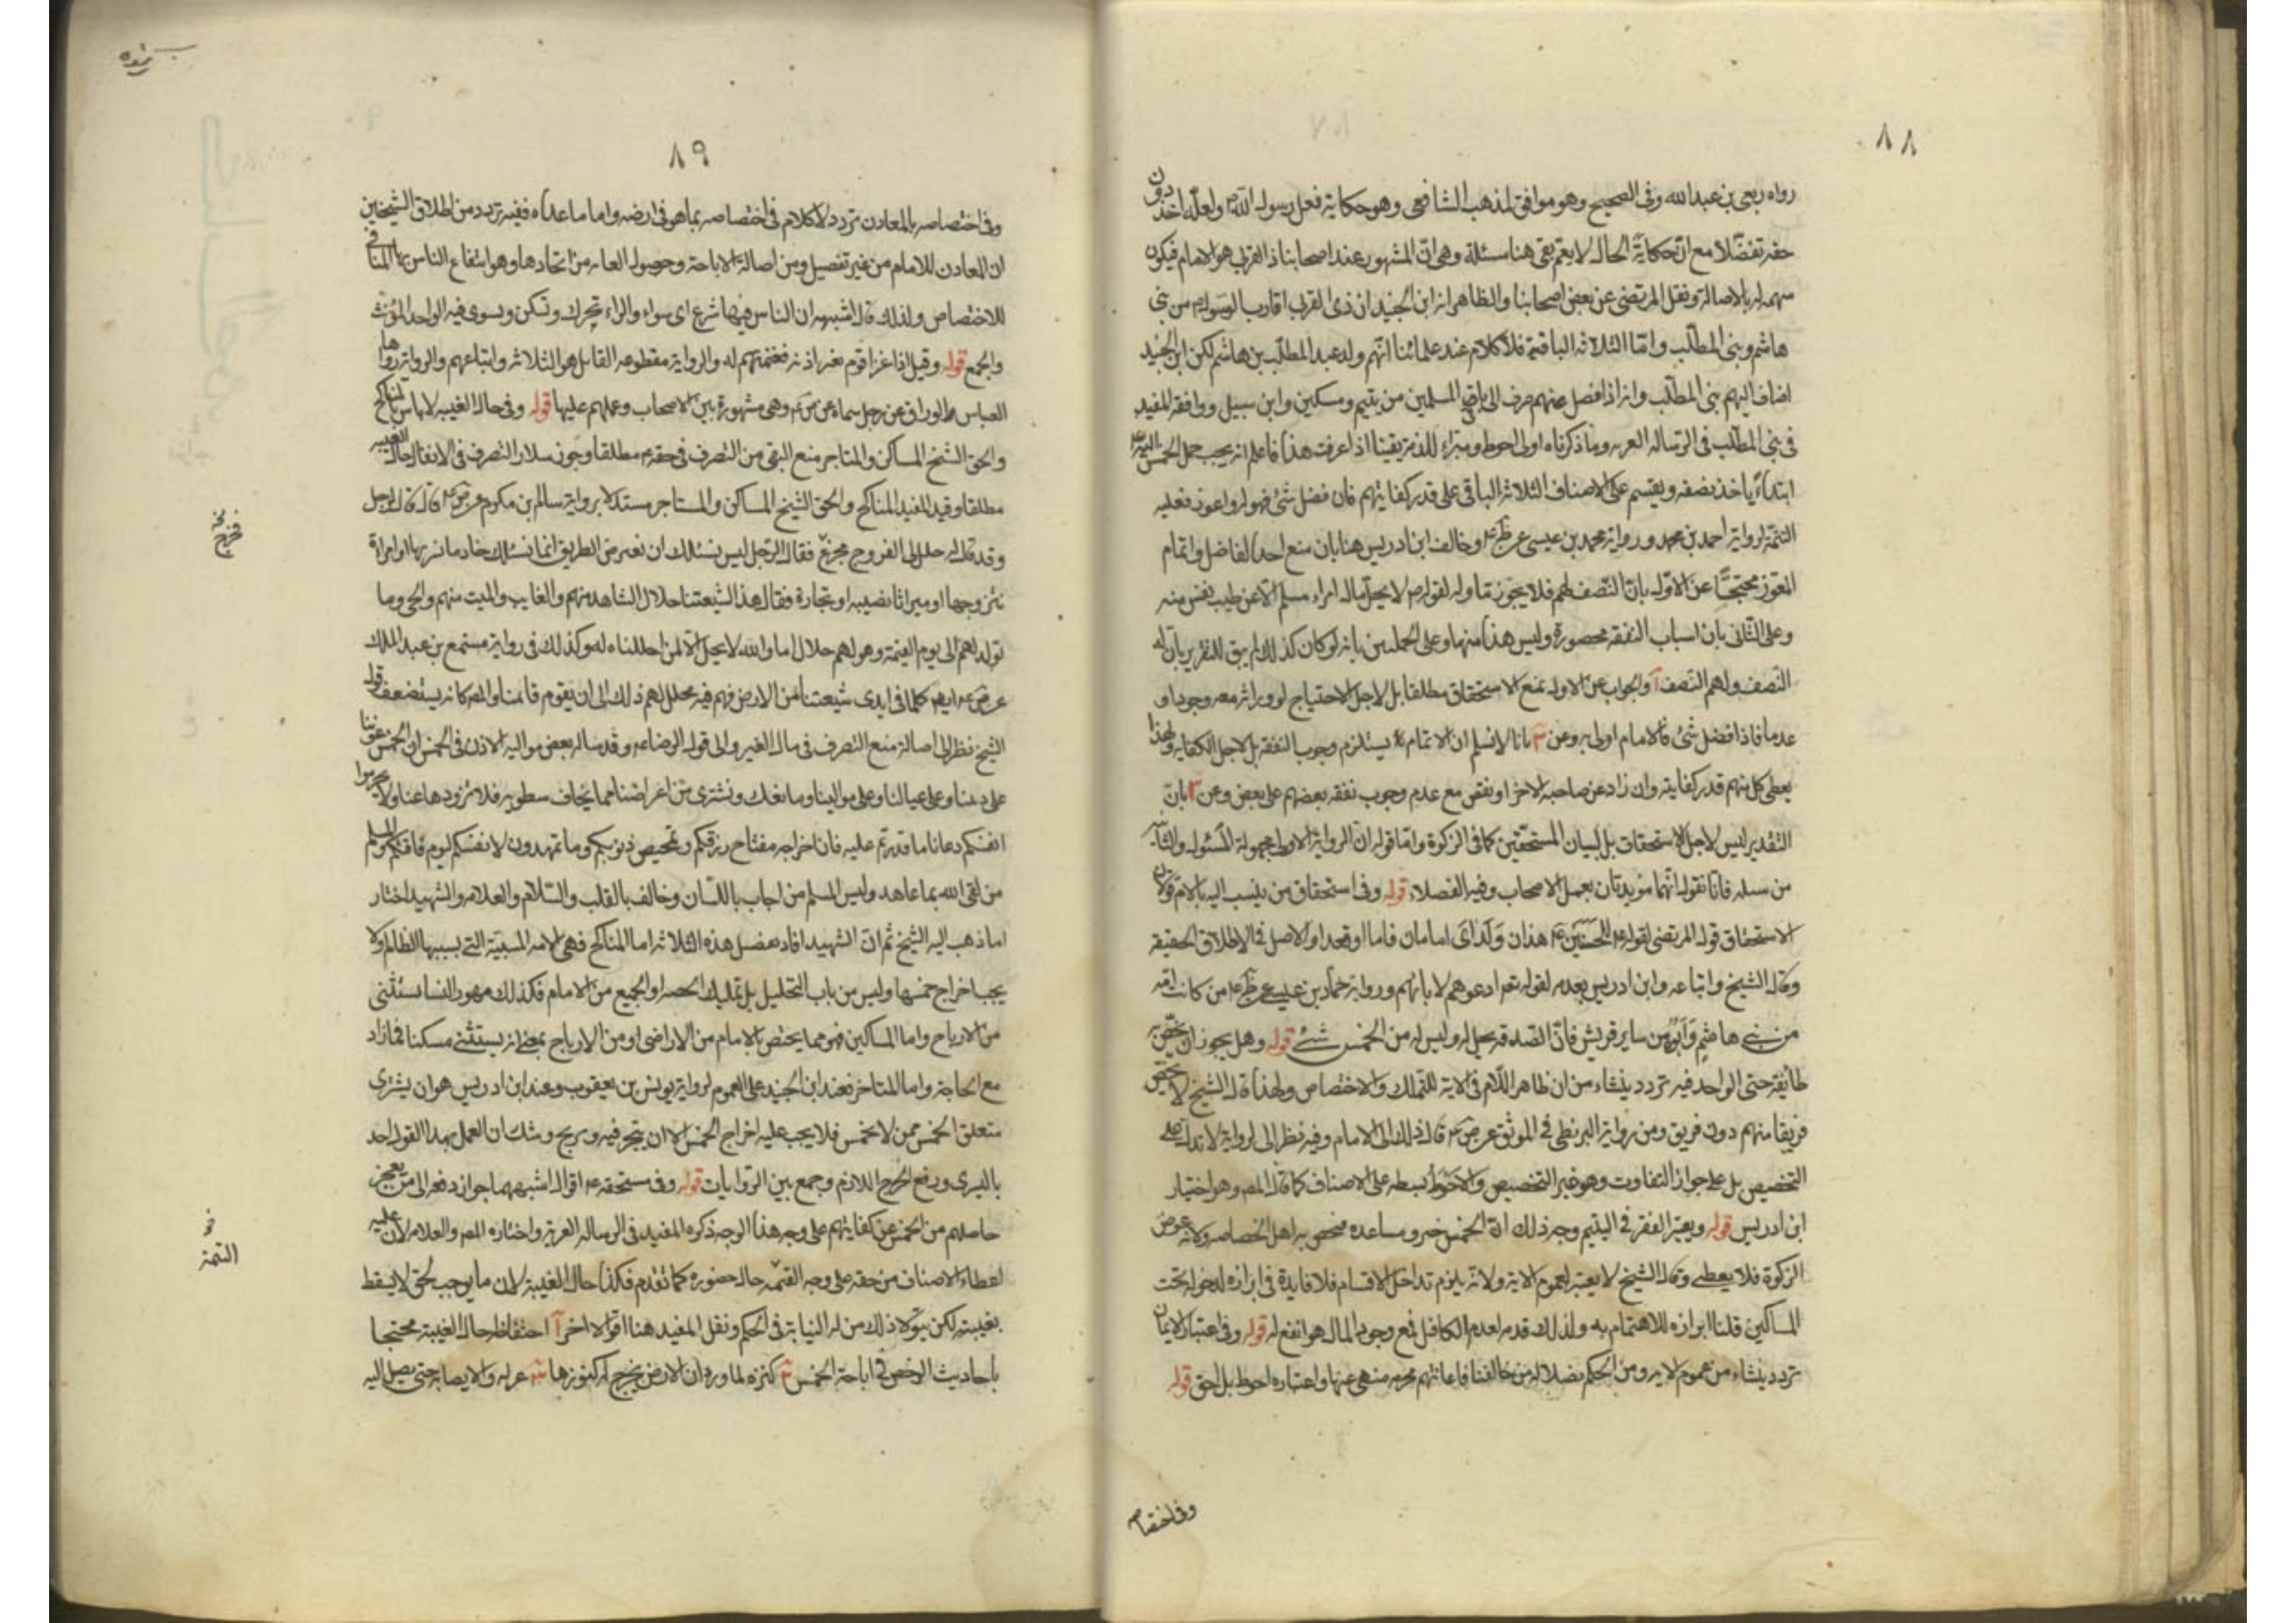 ٨٨
رواه ربعى بن عبدالله وفى الصحيح وهو موافق لمذهب الشافعى وهو حكاية فعل رسول الله ص ولعلّه اخذ دون
حقه تفضّلا مع انّ حكاية الحال لا يعم بقى هنا مسئلة وهى انّ المشهور عند اصحابنا ذا القربى هو الامام فيكون
سهمه له بالاصالة ونقل المرتضى عن بعض اصحابنا والظاهر انه ابن الجنيد ان ذى القربى اقارب الرسول ص من بنى
هاشم وبنى المطّلب وامّا الثلاثه الباقية فلا كلام عند علمائنا انّهم ولد عبد المطّلب بن هاشم لكن ابن الجنيد
اضاف اليهم بنى المطّلب وانه اذا فضل عنهم صرف الى باقى المسلمين من يتيم ومسكين وابن سبيل ووافقه المفيد
فى بنى المطّلب فى الرساله العزيه وما ذكرناه اولى احوط ومبراء للذمة يقينا اذا عرفت هذا فاعلم انه يجب حمل الخمس اليه ع
ابتداءً ياخذ نصفه ويقسم على الاصناف الثلاثه الباقى على قدر كفايتهم فان فضل شئ فهو له واعوز فعليه
التتمّة لرواية احمد بن محمد ورواية محمد بن عيسى عن ظم ع وخالف ابن ادريس هنا بان منع اخذ الفاضل واتمام
المعوز محتجّاً عن الاوّل بانّ النّصف لهم فلا يجوز تناوله لقوله ص لا يحلّ مال امراء مسلم الّا عن طيب نفس منه
وعلى الثّانى بان اسباب النفقه محصورة وليس هذا منها وعلى الجملتين بانه لو كان كذلك لم يبق للتقرير بانّ له
النّصف ولهم النّصف آ والجواب عن الاول بمنع الاستحقاق مطلقا بل لاجل الاحتياج لو وراثه معه وجودا و
عدما فاذا فضل شئ فالامام اولى به وعن ٢ بانا لا نسلم ان الاتمام يستلزم وجوب النفقه بل لاجل الكفايه ولهذا
يعطى كل منهم قدر كفايته وان زاد عن صاحبه الاخر او نقص مع عدم وجوب نفقه بعضهم على بعض وعن ٣ بانّ
التّقدير ليس لاجل الاستحقاق بل لبيان المستحّقين كما فى الزكوة وامّا قوله انّ الرواية الاولى مجهولة المسئول والثانية
من سله فانّا نقول انّهما مؤيدتان بعمل الاصحاب وفيه الفصلاء قوله وفى استحقاق من ينسب اليه بالام قولان
الاستحقاق قول المرتضى لقوله ع للحسنين ع هذان ولداى امامان قاما او قعدا والاصل فى الاطلاق الحقيقه
وقال الشيخ واتباعه وابن ادريس بعدمه لقوله تعم ادعوهم لابائهم ورواية حمّاد بن عليسى عن ظم ع من كانت امّه
من بنى هاشم وابوه من ساير قريش فانّ الصّدقه يحل له وليس له من الخمس شئ قوله وهل يجوز ان يخصّ به
طائفة حتى الواحد فيه تردد ينشاء من ان ظاهر اللّام فى الاية للتملك والاختصاص ولهذا قال الشيخ لا يخصّ
فريقا منهم دون فريق ومن رواية البزنطى فى الموثق عن ض ع قال ذلك الى الامام وفيه نظر الى الرواية لا تدل على
التخصيص بل على جواز التفاوت وهو غير التخصيص والاحوط بسطه على الاصناف كما قال المص وهو اختيار
ابن ادريس قوله ويعتبر الفقر فى اليتيم وجه ذلك انّ الخمس خير ومساعده مختص به اهل الخصاصه ولانه عوض
الزكوة فلا يعطى وقال الشيخ لا يعتبر لعموم الاية ولانّه يلزم تداخل الاقسام فلا فايدة فى ابرازه لدخوله تحت
المساكين قلنا ابرازه للاهتمام به ولذلك قدمه لعدم الكافل فمع وجود المال هو انفع له قوله وفى اعتبار الايمان
تردد ينشاء من عموم الايه ومن الحكم بضلال من خالفنا فاعانتهم محرمه منهى عنها واعتباره احوط بل احق قوله
وفى اختصاص
٨٩
وفى اختصاصه بالمعادن تردد لا كلام فى اختصاصه بما هو فى ارضه واما ما عداه ففيه تردد من اطلاق الشيخين
ان المعادن للامام من غير تفصيل ومن اصالة الاباحة وحصول الغايه من اتحادها وهو انتفاع الناس بها المنافى
للاختصاص ولذلك قال اشبهه ان الناس فيها شرع اى سواء والراء تحرك وتسكن ويسوى فيه الواحد المؤنث
والجمع قوله وقيل اذا غزا قوم بغير اذنه فغنيمتهم له والرواية مقطوعه القائل هو الثلاثه واتباعهم والرواية رواها
العباس الوراق عن رجل سماه عن ص ع وهى مشهورة بين الاصحاب وعملهم عليها قوله وفى حال الغيبه لا باس بالمناكح
والحق الشيخ المساكن والمتاجر منع البقى من التصرف فى حقه ع مطلقا وجوز سلار التصرف فى الانفال حال الغيبه
مطلقا وقيد المفيد المناكح والحق الشيخ المساكن والمتاجر مستدلا برواية سالم بن مكرم عن ص ع قال قال رجل
وقد قال له حلل لى الفروج مجزع فقال الرّجل ليس يسئلك ان نعرض الطريق انما يسئلك خادما نشريها او امراة
نتزوجها او ميراثا نصيبه او تجارة فقال هذا لشيعتنا حلال الشاهد منهم والغايب والميت منهم والحى وما
تولد لهم الى يوم القيمة وهو لهم حلال اما والله لا يحل الّا لمن احللناه له وكذلك فى رواية مسمع بن عبد الملك
عن ص ع ايضا كلما فى ايدى شيعتنا من الارض فهم فيه محلل لهم ذلك الى ان يقوم قائمنا والمص كانه يستضعف قول
الشيخ نظر الى اصالة منع التصرف فى مال الغير والى قول الرضا ع وقد ساله بعض مواليه الاذن فى الخمس ان الخمس عوننا
على ديننا وعلى عيالنا وعلى موالينا وما نفك ونشترى من اعراضنا مما نخاف سطوته فلا تزووه عنا ولا تحرموا
انفسكم دعانا ما قدرتم عليه فان اخراجه مفتاح رزقكم وتمحيص ذنوبكم وما تمهدون لانفسكم ليوم فاقتكم والمسلم
من لقى الله بما عاهد وليس المسلم من اجاب باللّسان وخالف بالقلب والسّلام والعلامه والشهيد اختار
ما ذهب اليه الشيخ ثم انّ الشهيد افاد بفصل هذه الثلاثه اما المناكح فهى الامه المسبية التى بسببها الظالم ولا
يجب اخراج خمسها وليس من باب التحليل بل تمليك الحصه او الجميع من الامام فكذلك مهور النسا يستثنى
من الارباح واما المساكن فهو مما يختص بالامام من الاراضى او من الارباح بمعنى انه يستثنى مسكنا فما زاد
مع الحاجة واما المتاجر فعند ابن الجنيد على العموم لرواية يونس بن يعقوب وعند ابن ادريس هو ان يشترى
متعلق الخمس ممن لا يخمس فلا يجب عليه اخراج الخمس الا ان يتجر فيه ويربح وشك ان العمل بهذا القول احد
باليسرى ورفع الحرج اللازم وجمع بين الروايات قوله وفى مستحقه ع اقوال اشبهها جواز دفعه الى من يعجز
حاصلهم من الخمس عن كفايتهم على وجه هذا الوجه ذكره المفيد فى الرساله العزية واختاره المص والعلامه لان عليه
اعطاء الاصناف من حقه على وجه القتمّه حال حضوره كما تقدم فكذا حال الغيبة لان ما يوجب لحق لا يسقط
بغيبته لكن يتولا ذلك من له النيابة فى الحكم ونقل المفيد هنا اقوالا اخر آ احتفاظ حال الغيبة محتجا
باحاديث الرخص فى اباحة الخمس ٢ كنزه لما ورد ان الارض يخرج له كنوزها ٣ عزله والايصا به حتى يصل اليه
فخرج
التتمة